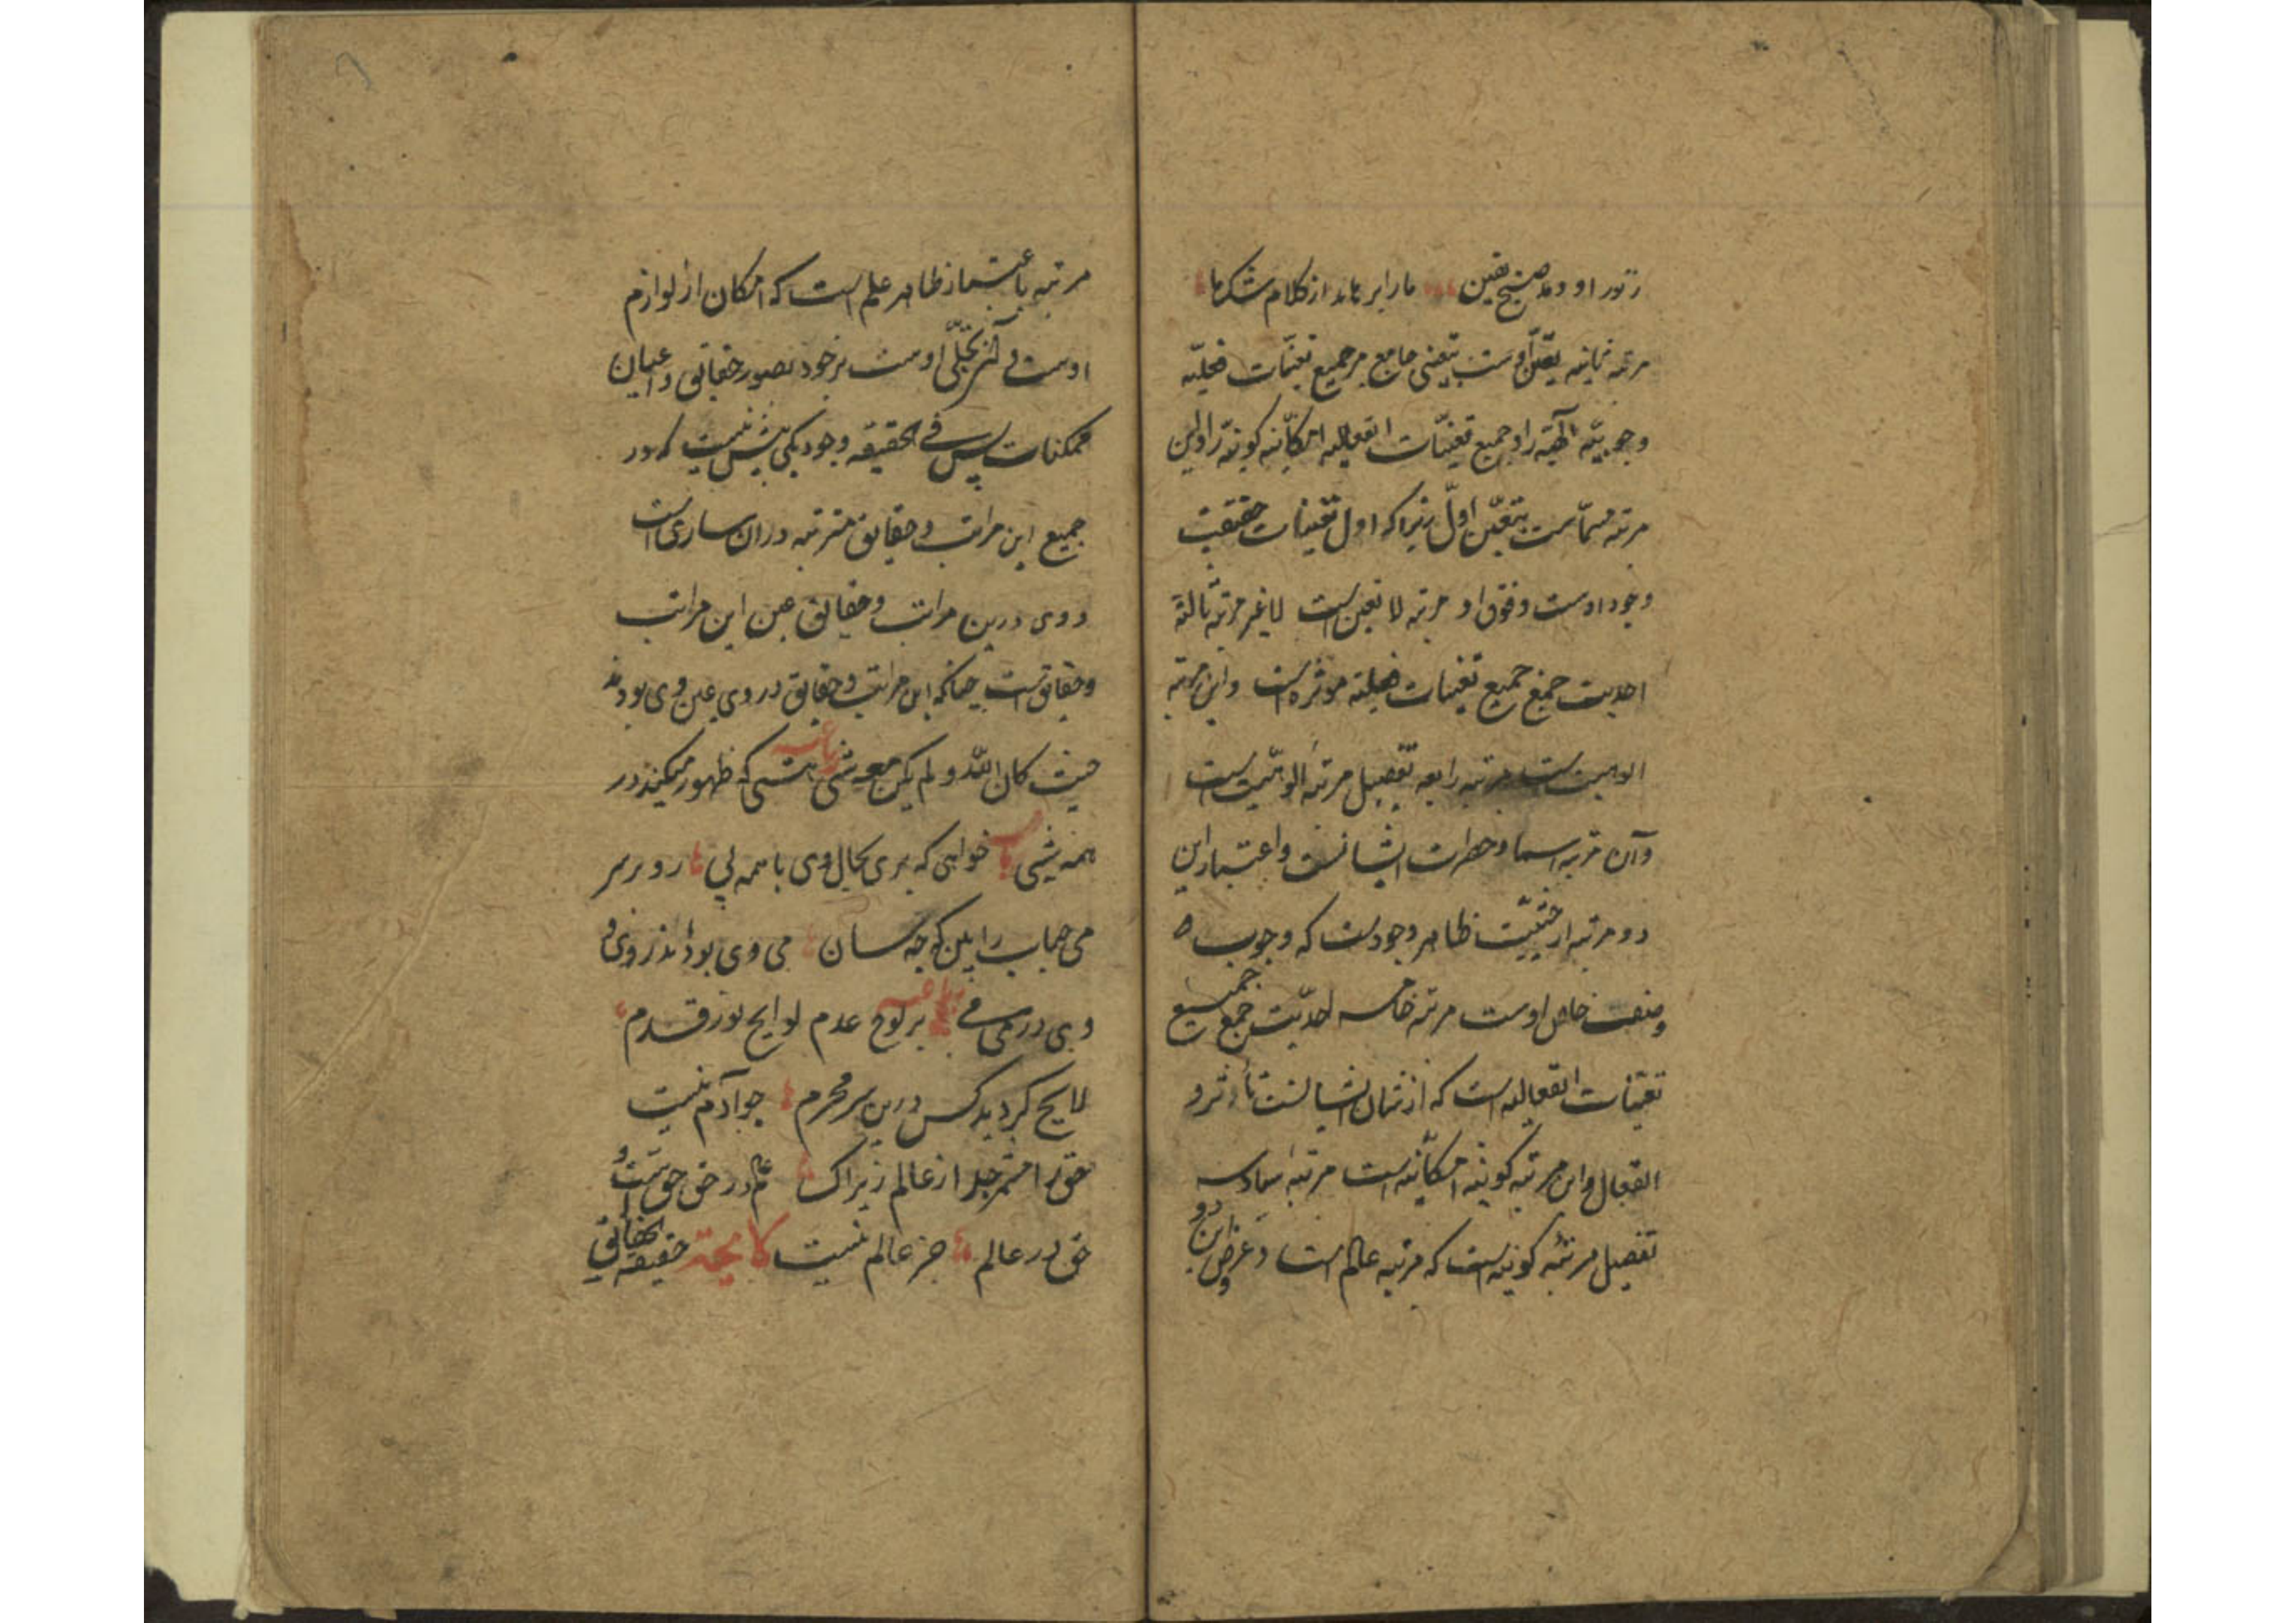 ز نور او ومد صبح یقین مارا برهاند از ظلام شکها
مرتبه ثانیه تعین اوست بتعینی جامع مر جمیع تعینات فعلیه
وجوبیه الهیه را و جمیع تعینات انفعالیه امکانیه کونیه را و این
مرتبه مسماست بتعین اول زیرا که اول تعینات حقیقت
وجود اوست و فوق او مرتبه لا تعین است لا غیر مرتبه ثالثه
احدیت جمع جمیع تعینات فعلیه موثره است و این مرتبه
الوهیت است مرتبه رابعه تفصیل مرتبه الوهیت است
و آن مرتبه اسما و حضرات ایشانست و اعتبار این
دو مرتبه از حیثیت ظاهر وجودست که وجوب
وصف خاص اوست مرتبه خامسه احدیت جمع جمیع
تعینات انفعالیه است که از شان ایشانست تاثر و
انفعال و این مرتبه کونیه امکانیه است مرتبه سادسه
تفصیل مرتبه کونیه است که مرتبه عالم است و عروض این دو
مرتبه باعتبار ظاهر علم است که امکان از لوازم
اوست و آن تجلی اوست بر خود بصور حقایق و اعیان
ممکنات پس فی الحقیقه وجود یکی بیش نیست که در
جمیع این مراتب و حقایق مترتبه در آن ساری است
و وی درین مراتب و حقایق عین این مراتب
و حقایق است چنانکه این مراتب و حقایق در وی عین وی بودند
حیث کان الله و لم یکن معه شی رباعیه هستی که ظهور میکند در
همه شی خواهی که بری بحال وی با همه پی رو بر سر
می حباب را بین که چه سان می وی بود اندر وی و
وی در می می رباعیه بر لوح عدم لوایح نور قدم
لایح گردید کس درین سر محرم چو آدم نیست
حق را مشمر جدا از عالم زیراک عالم در حق حق است و
حق در عالم جز عالم نیست لایحه حقیقة الحقایق